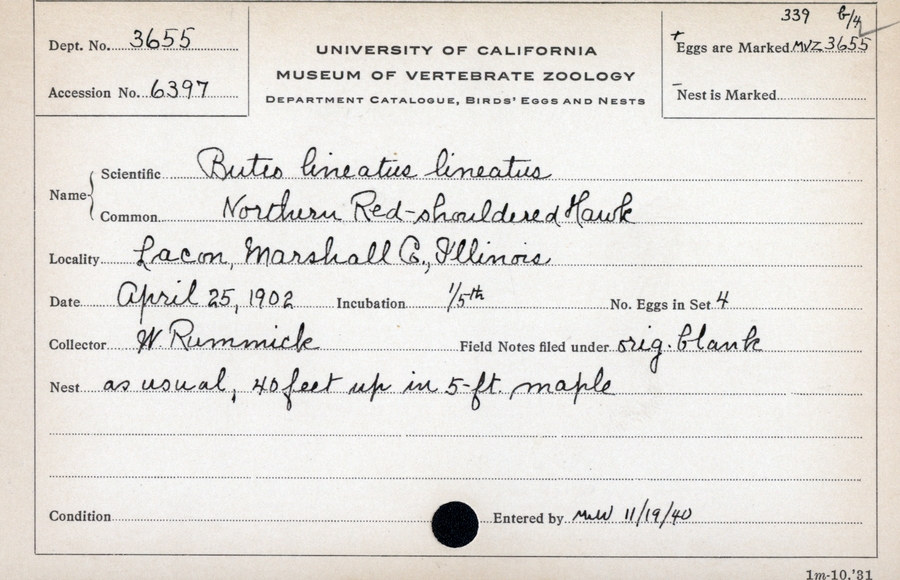 339 b/4
Dept. No. 3655
UNIVERSITY OF CALIFORNIA
MUSEUM OF VERTEBRATE ZOOLOGY
DEPARTMENT CATALOGUE, BIRDS' EGGS AND NESTS
+Eggs are Marked MVZ 3655
Accession No. 6397
-Nest is Marked
Name { Scientific Buteo lineatus lineatus
Common Northern Red-shouldered Hawk
Locality Lacon, Marshall Co., Illinois
Date April 25, 1902 Incubation 1/5th No. Eggs in Set 4
Collector W. Rummick Field Notes filed under orig. blank
Nest as usual, 40 feet up in 5-ft. maple
Condition Entered by 11/19/40
1m-10,'31